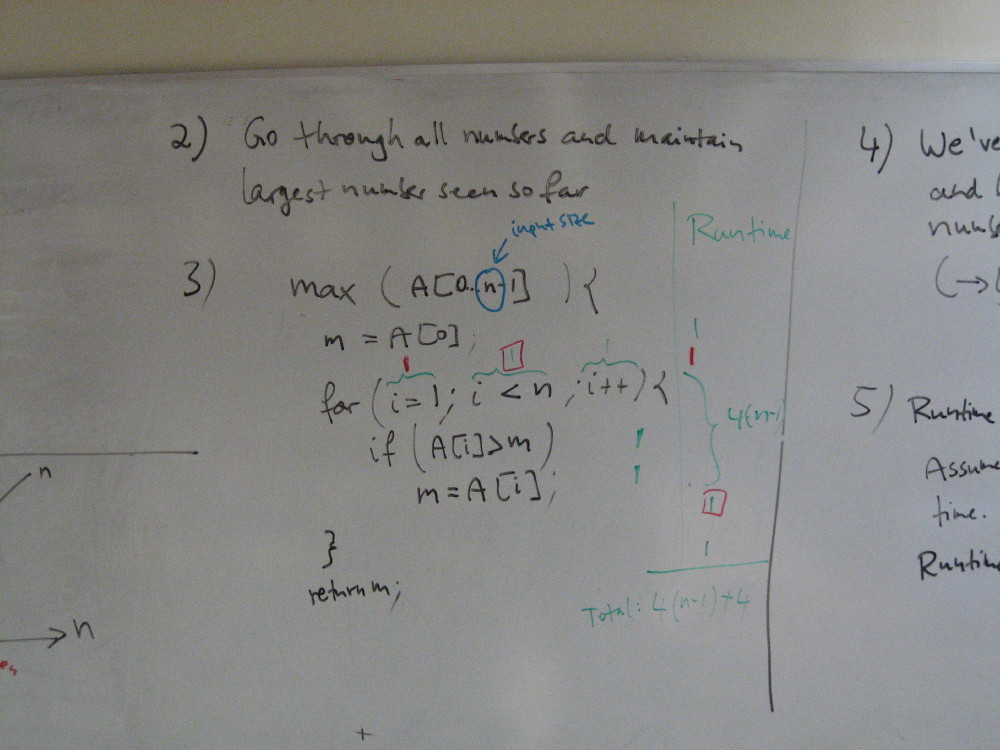 2) Go through all numbers and maintain
largest number seen so far
input size
3) max (A[0..n-1]) {
m = A[0];
for (i=1; i < n; i++) {
if (A[i]>m)
m = A[i];
}
return m;
Runtime
1
1
1
1
1
1
1
4(n-1)
1
1
Total: 4(n-1)+4
n
n
4) We've
and
5) Runtime
Assume
time.
Runtime
+